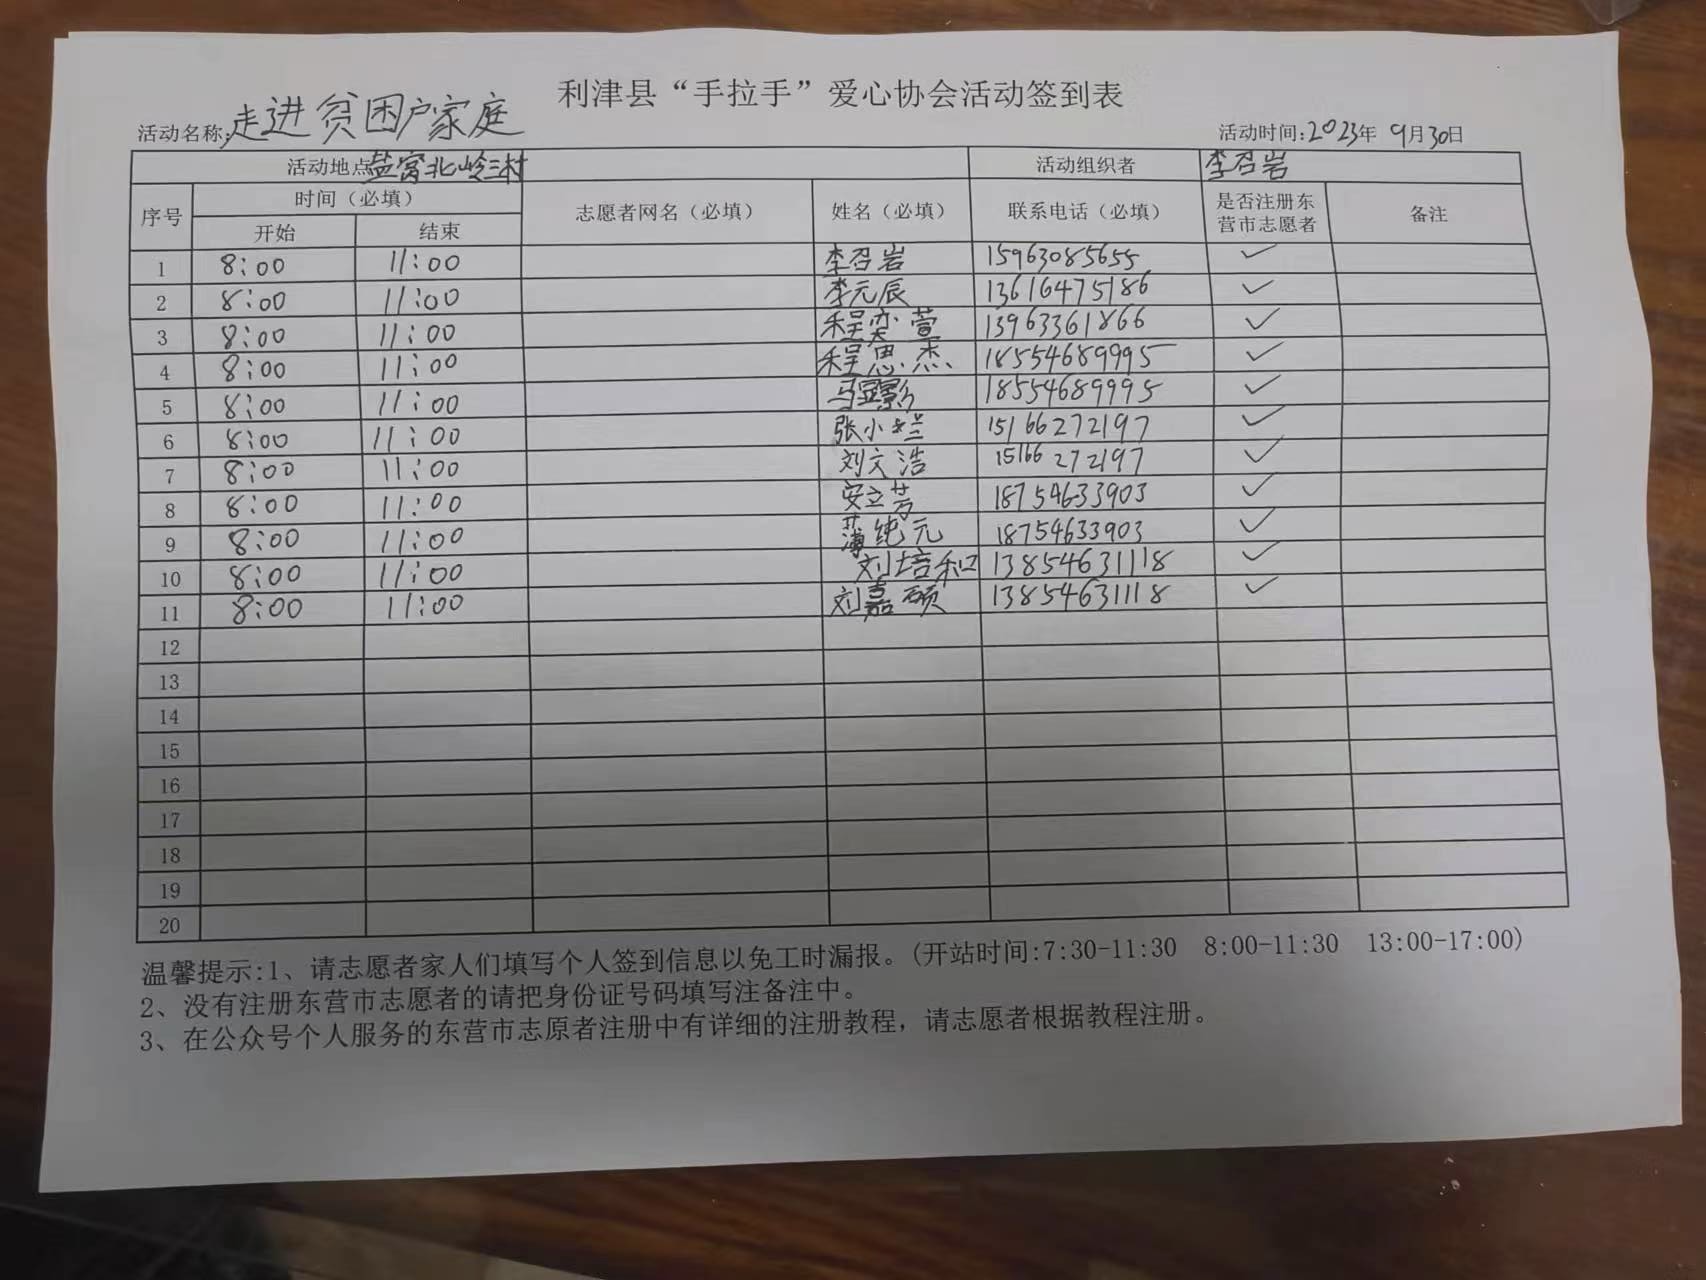 利津县“手拉手”爱心协会活动签到表
活动名称:走进贫困户家庭 活动时间:2023年9月30日
活动地点 盐窝北岭三村 活动组织者 李召岩
序号 时间（必填） 志愿者网名（必填） 姓名（必填） 联系电话（必填） 是否注册东营市志愿者 备注
开始 结束
1 8:00 11:00 李召岩 15963085655 ✓
2 8:00 11:00 李元辰 13616475186 ✓
3 8:00 11:00 程奕萱 13963361866 ✓
4 8:00 11:00 程思杰 18554689995 ✓
5 8:00 11:00 马显影 18554689995 ✓
6 8:00 11:00 张小兰 15166272197 ✓
7 8:00 11:00 刘文浩 15166272197 ✓
8 8:00 11:00 安立芳 18754633903 ✓
9 8:00 11:00 薄纯元 18754633903 ✓
10 8:00 11:00 刘培和 13854631118 ✓
11 8:00 11:00 刘嘉硕 13854631118 ✓
12
13
14
15
16
17
18
19
20
温馨提示:1、请志愿者家人们填写个人签到信息以免工时漏报。(开站时间:7:30-11:30 8:00-11:30 13:00-17:00)
2、没有注册东营市志愿者的请把身份证号码填写注备注中。
3、在公众号个人服务的东营市志原者注册中有详细的注册教程，请志愿者根据教程注册。